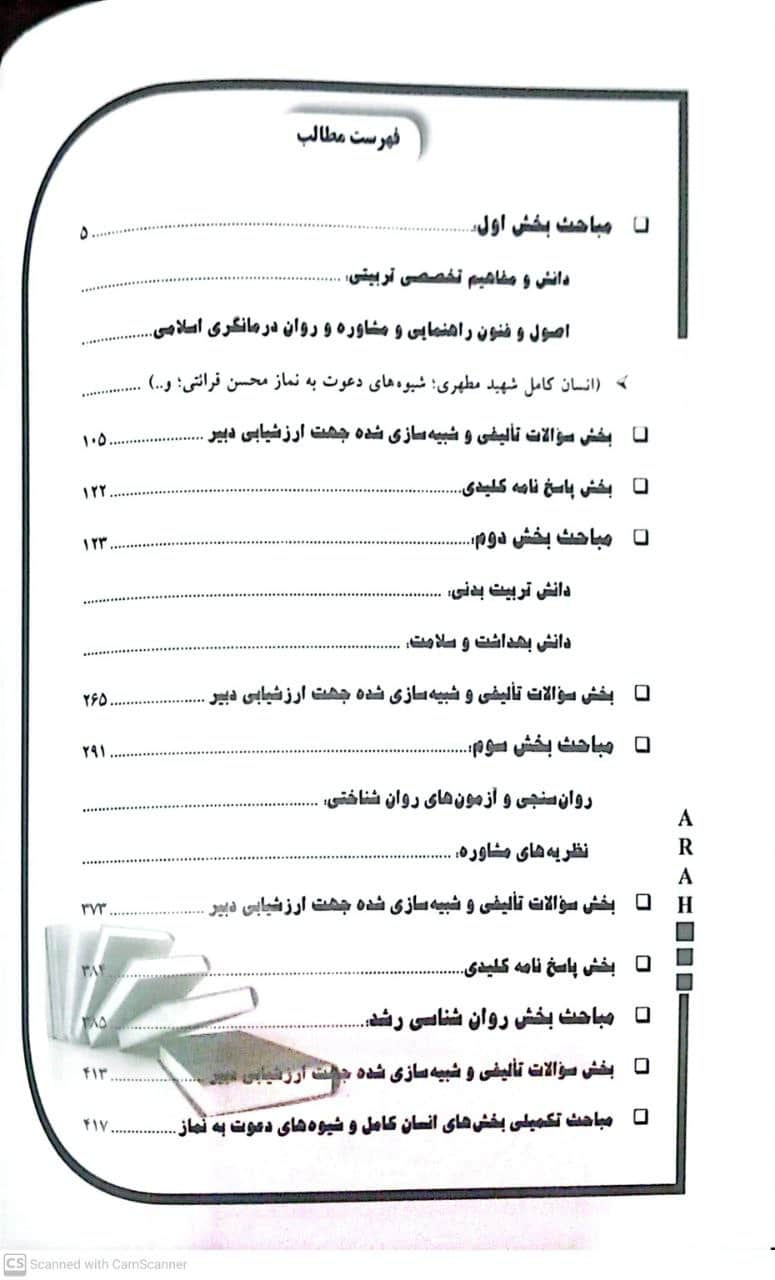 فهرست مطالب
❑ مباحث بخش اول: ۵
دانش و مفاهیم تخصصی تربیتی:
اصول و فنون راهنمایی و مشاوره و روان درمانگری اسلامی
➢ (انسان کامل شهید مطهری؛ شیوه‌های دعوت به نماز محسن قرائتی؛ و..)
❑ بخش سؤالات تألیفی و شبیه‌سازی شده جهت ارزشیابی دبیر ۱۰۵
❑ بخش پاسخ نامه کلیدی ۱۲۲
❑ مباحث بخش دوم: ۱۲۳
دانش تربیت بدنی:
دانش بهداشت و سلامت:
❑ بخش سؤالات تألیفی و شبیه‌سازی شده جهت ارزشیابی دبیر ۲۶۵
❑ مباحث بخش سوم: ۲۹۱
روان‌سنجی و آزمون‌های روان شناختی:
نظریه‌های مشاوره:
❑ بخش سؤالات تألیفی و شبیه‌سازی شده جهت ارزشیابی دبیر ۳۷۳
❑ بخش پاسخ نامه کلیدی ۳۸۴
❑ مباحث بخش روان شناسی رشد: ۳۸۵
❑ بخش سؤالات تألیفی و شبیه‌سازی شده جهت ارزشیابی دبیر ۴۱۳
❑ مباحث تکمیلی بخش‌های انسان کامل و شیوه‌های دعوت به نماز ۴۱۷
ARAH
CS Scanned with CamScanner